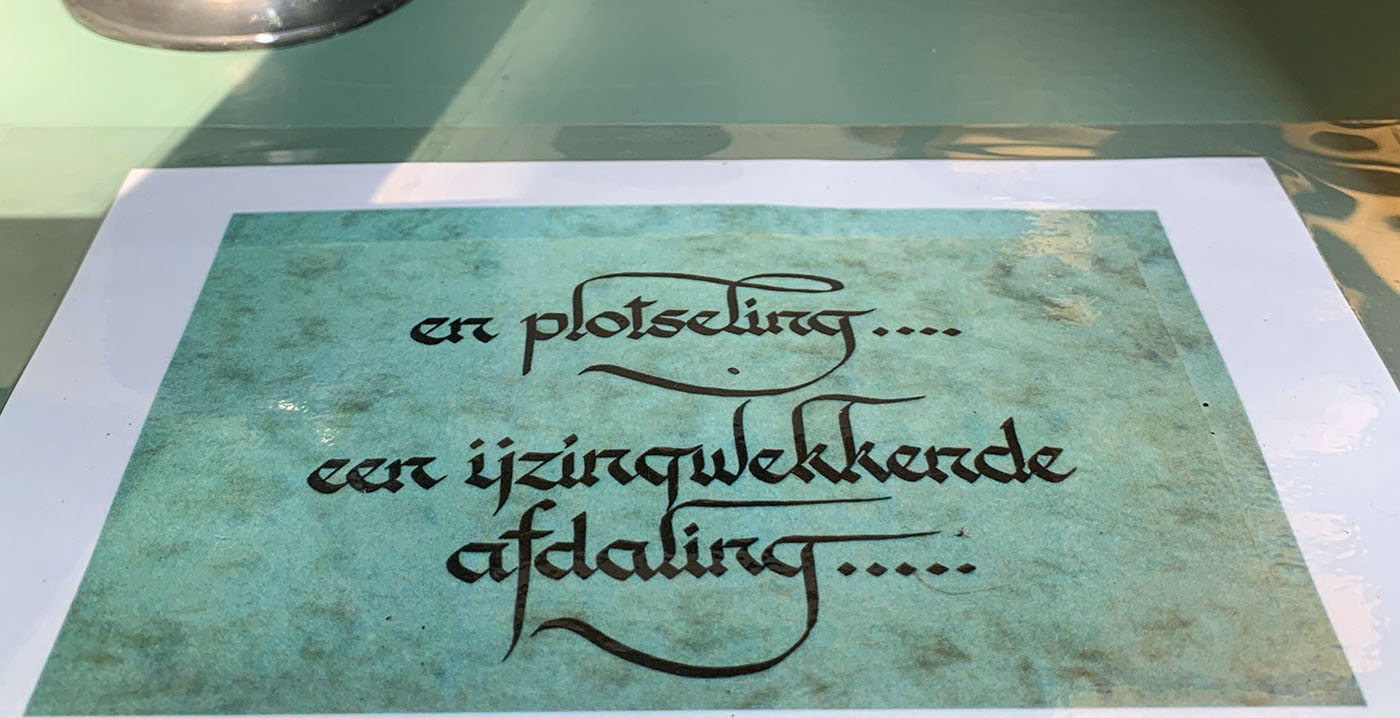 en plotseling....
een ijzingwekkende
afdaling.....